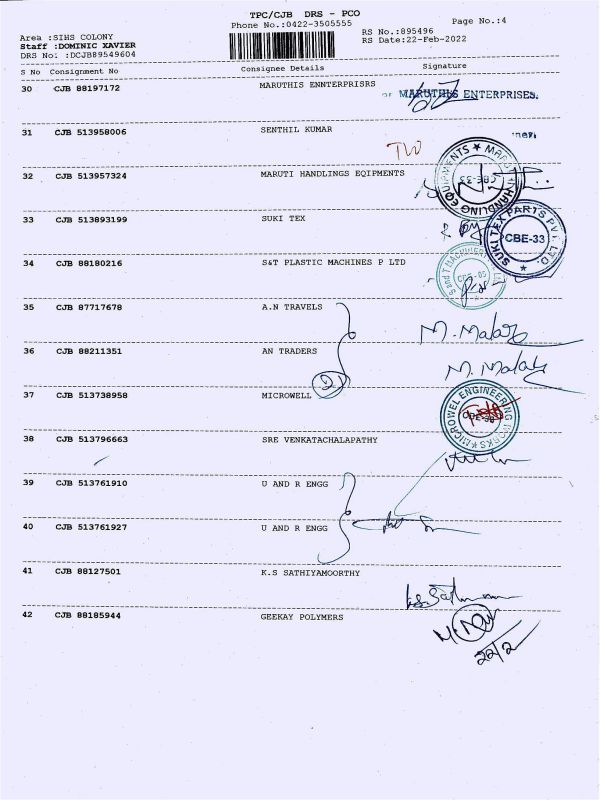 TPC/CJB DRS - PCO
Phone No.:0422-3505555
Page No.:4
Area :SIHS COLONY
RS No.:895496
Staff :DOMINIC XAVIER
RS Date:22-Feb-2022
DRS No. :DCJB89549604
S No Consignment No Consignee Details Signature
30 CJB 88197172 MARUTHIS ENNTERPRISRS
MARUTHIS ENTERPRISES.
31 CJB 513958006 SENTHIL KUMAR
32 CJB 513957324 MARUTI HANDLINGS EQIPMENTS
MARUTI HANDLING EQUIPMENTS ★
CBE-33
33 CJB 513893199 SUKI TEX
SUKI TEX PARTS PVT LTD ★
CBE-33
34 CJB 88180216 S&T PLASTIC MACHINES P LTD
35 CJB 87717678 A.N TRAVELS
M. Malar
36 CJB 88211351 AN TRADERS
M. Malar
37 CJB 513738958 MICROWELL
MICROWEL ENGINEERING WORKS ★
38 CJB 513796663 SRE VENKATACHALAPATHY
39 CJB 513761910 U AND R ENGG
40 CJB 513761927 U AND R ENGG
41 CJB 88127501 K.S SATHIYAMOORTHY
42 CJB 88185944 GEEKAY POLYMERS
22/2